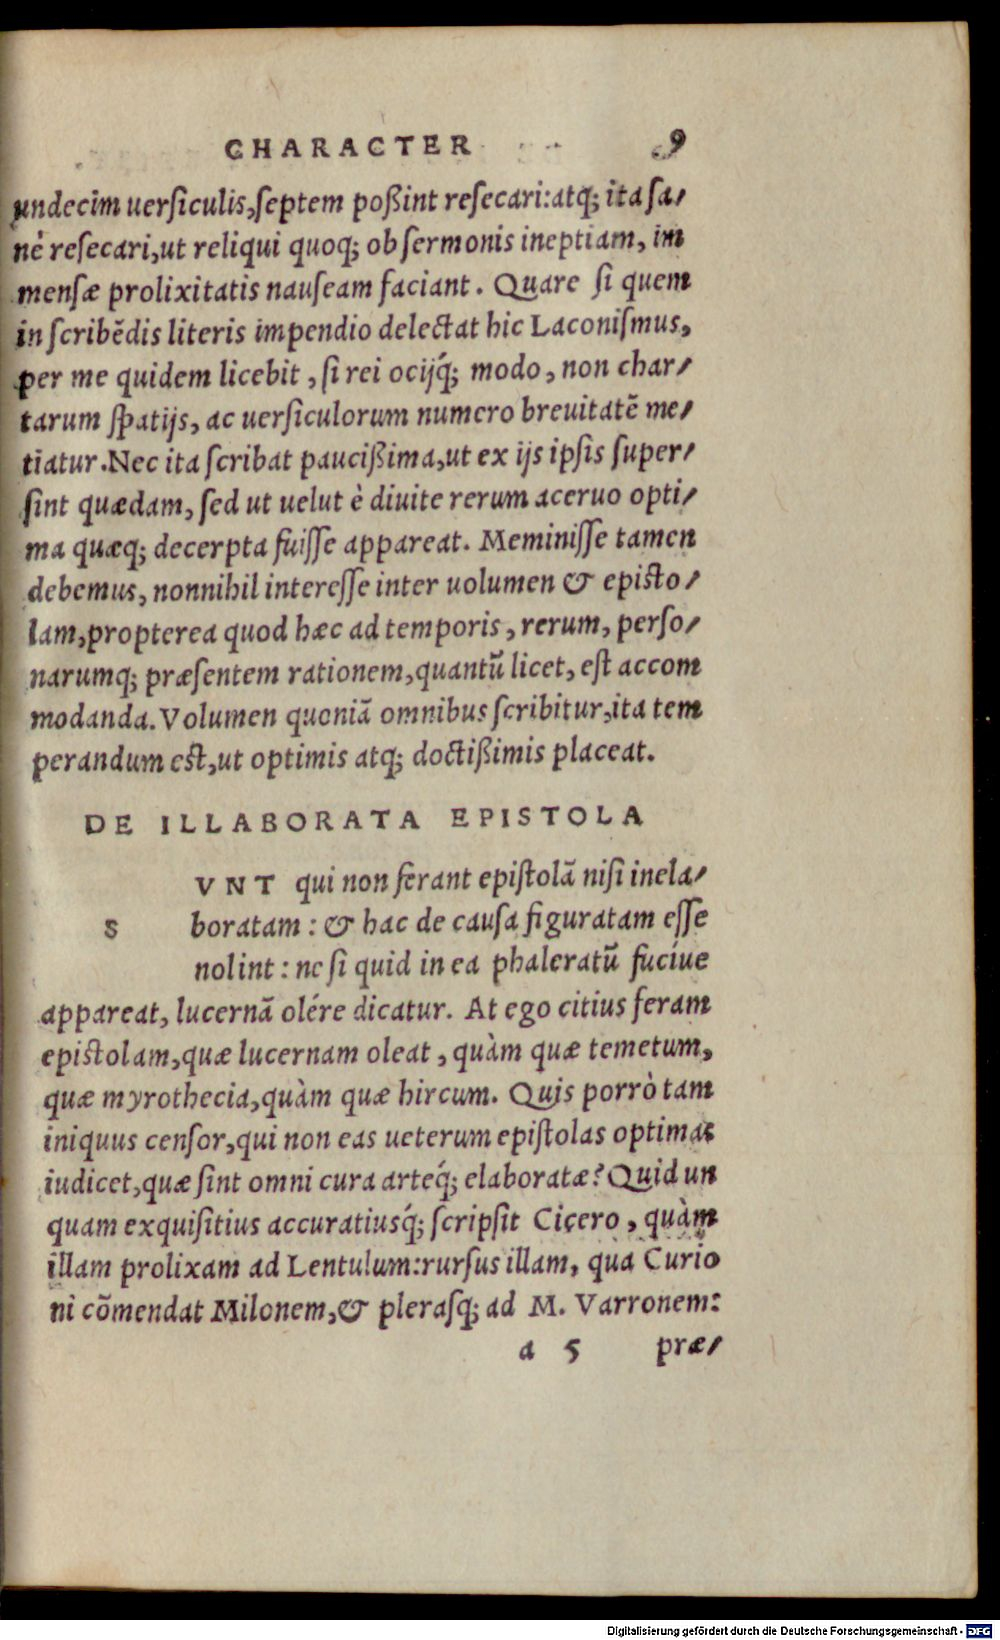 CHARACTER 9
undecim uerſiculis,ſeptem poßint reſecari:atq; ita ſa/
nè reſecari,ut reliqui quoq; ob ſermonis ineptiam, im
menſæ prolixitatis nauſeam faciant. Quare ſi quem
in ſcribẽdis literis impendio delectat hic Laconiſmus,
per me quidem licebit, ſi rei ocijq́; modo, non char/
tarum ſpatijs, ac uerſiculorum numero breuitatẽ me/
tiatur. Nec ita ſcribat paucißima,ut ex ijs ipſis ſuper/
ſint quædam, ſed ut uelut è diuite rerum aceruo opti/
ma quæq; decerpta fuiſſe appareat. Meminiſſe tamen
debemus, nonnihil intereſſe inter uolumen & epiſto/
lam,propterea quod hæc ad temporis, rerum, perſo/
narumq; præſentem rationem,quantũ licet, eſt accom
modanda. Volumen quoniã omnibus ſcribitur,ita tem
perandum eſt,ut optimis atq; doctißimis placeat.
DE ILLABORATA EPISTOLA
SVNT qui non ferant epiſtolã niſi inela/
boratam: & hac de cauſa figuratam eſſe
nolint: ne ſi quid in ea phaleratũ fucíue
appareat, lucernã olére dicatur. At ego citius feram
epiſtolam,quæ lucernam oleat, quàm quæ temetum,
quæ myrothecia,quàm quæ hircum. Quis porrò tam
iniquus cenſor,qui non eas ueterum epiſtolas optimas
iudicet,quæ ſint omni cura arteq́; elaboratæ? Quid un
quam exquiſitius accuratiusq́; ſcripſit Cicero, quàm
illam prolixam ad Lentulum:rurſus illam, qua Curio
ni cõmendat Milonem,& pleraſq; ad M. Varronem:
a 5 præ/
Digitalisierung gefördert durch die Deutsche Forschungsgemeinschaft - DFG